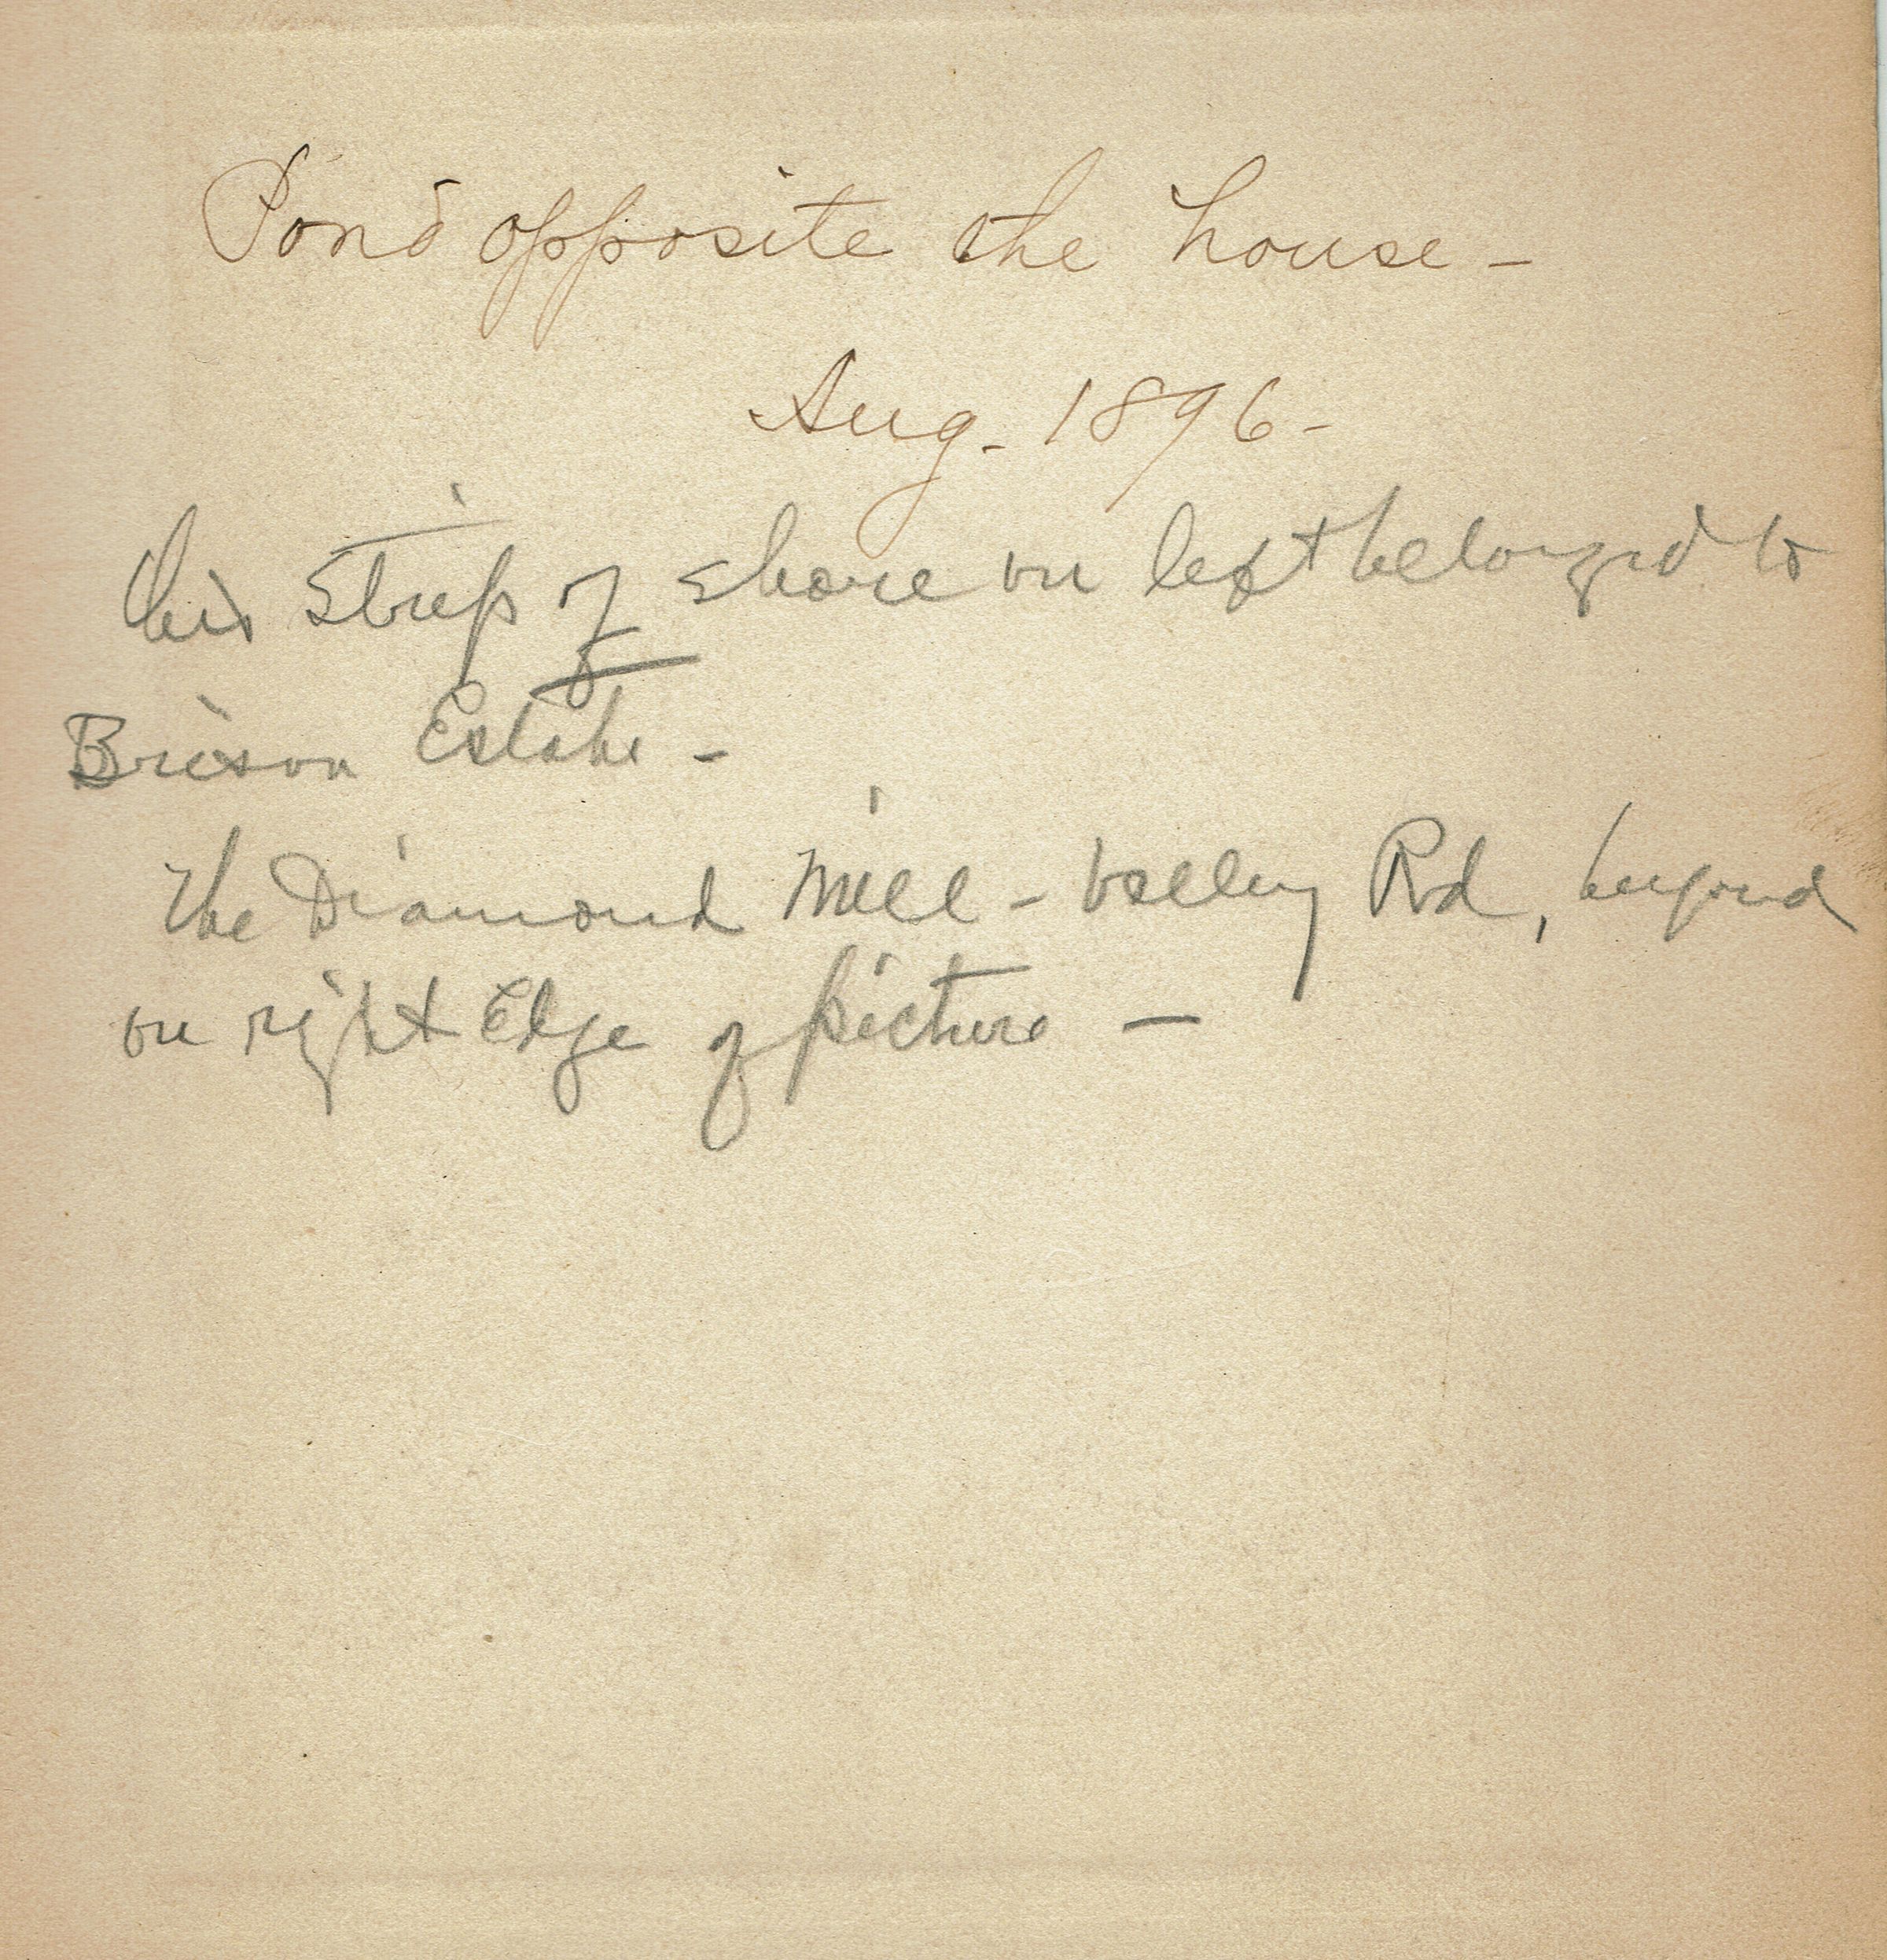 Pond opposite the house -
Aug. 1896 -
this strip of shore on left belonged to
Brixon Estate -
The Diamond Mill - Valley Rd, beyond
on right Edge of picture —